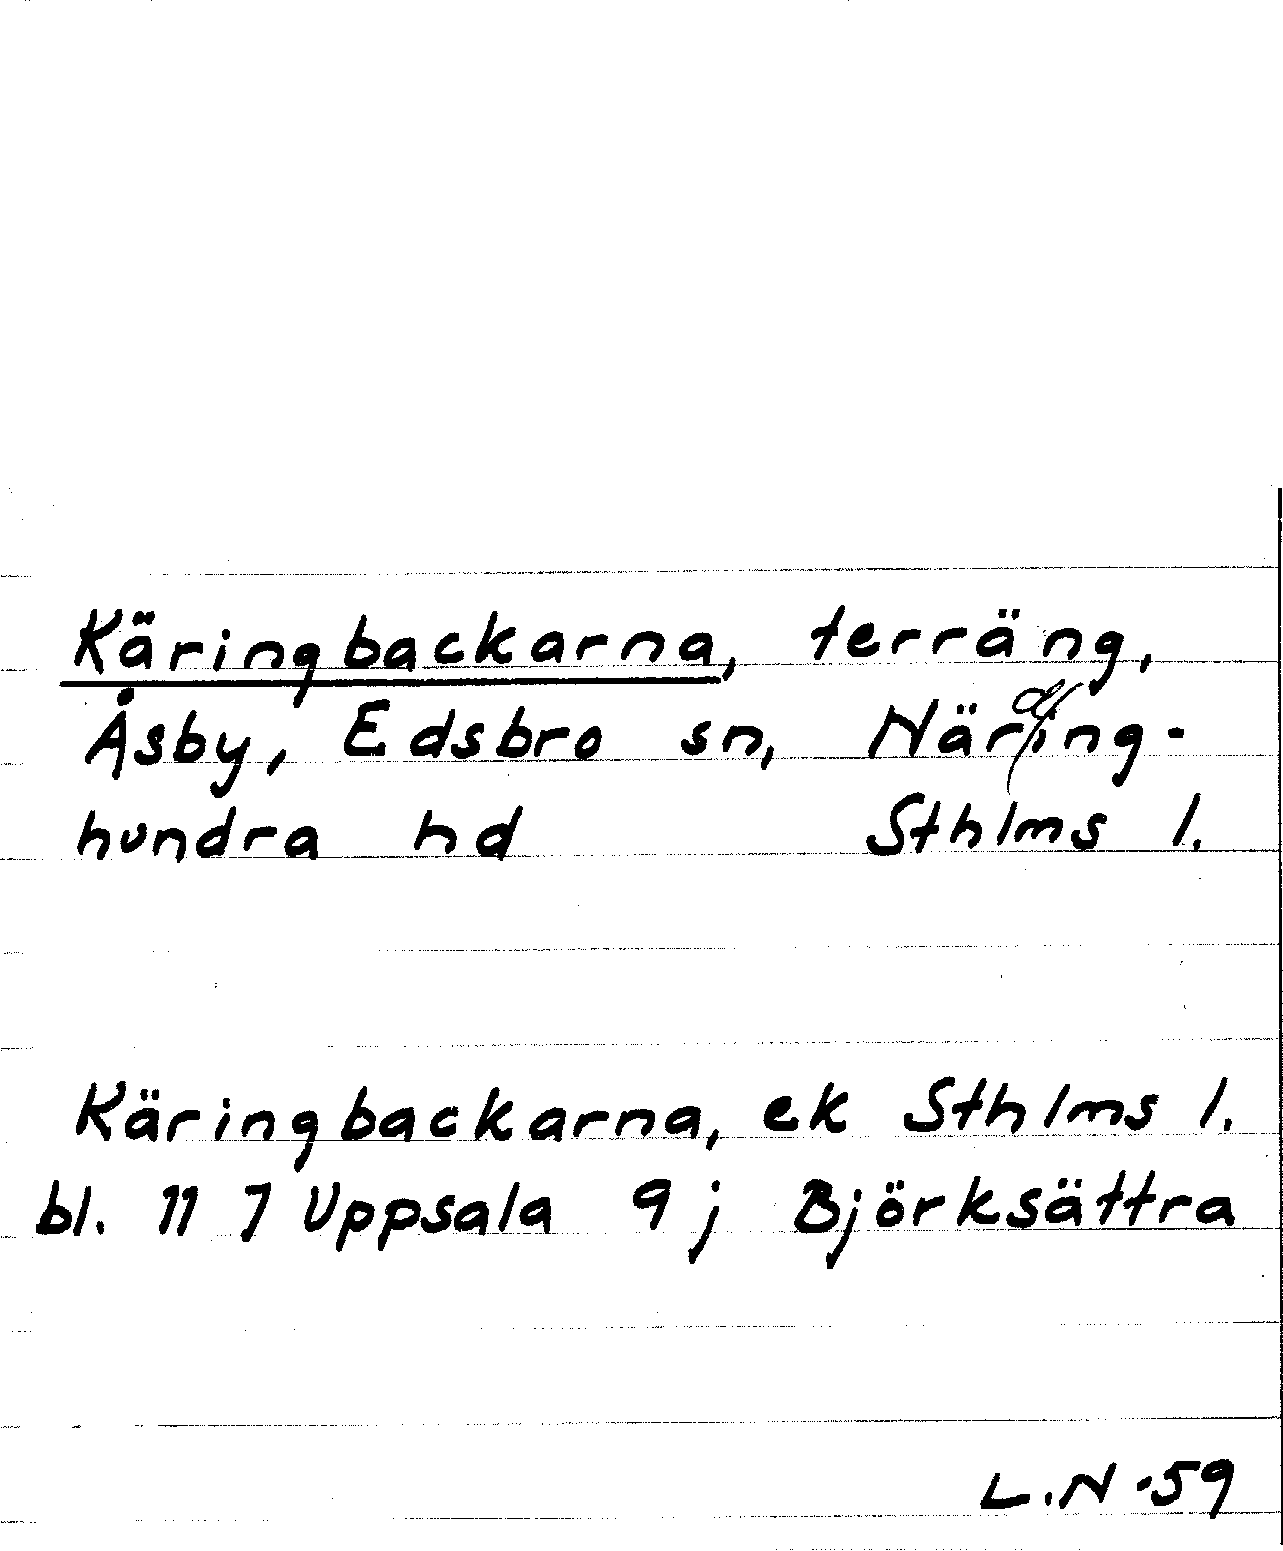 Käringbackarna, terräng,
Åsby, Edsbro sn, Närding-
hundra hd Sthlms l.
Käringbackarna, ek Sthlms l.
bl. 11 7 Uppsala 9 j Björksättra
L.N -59